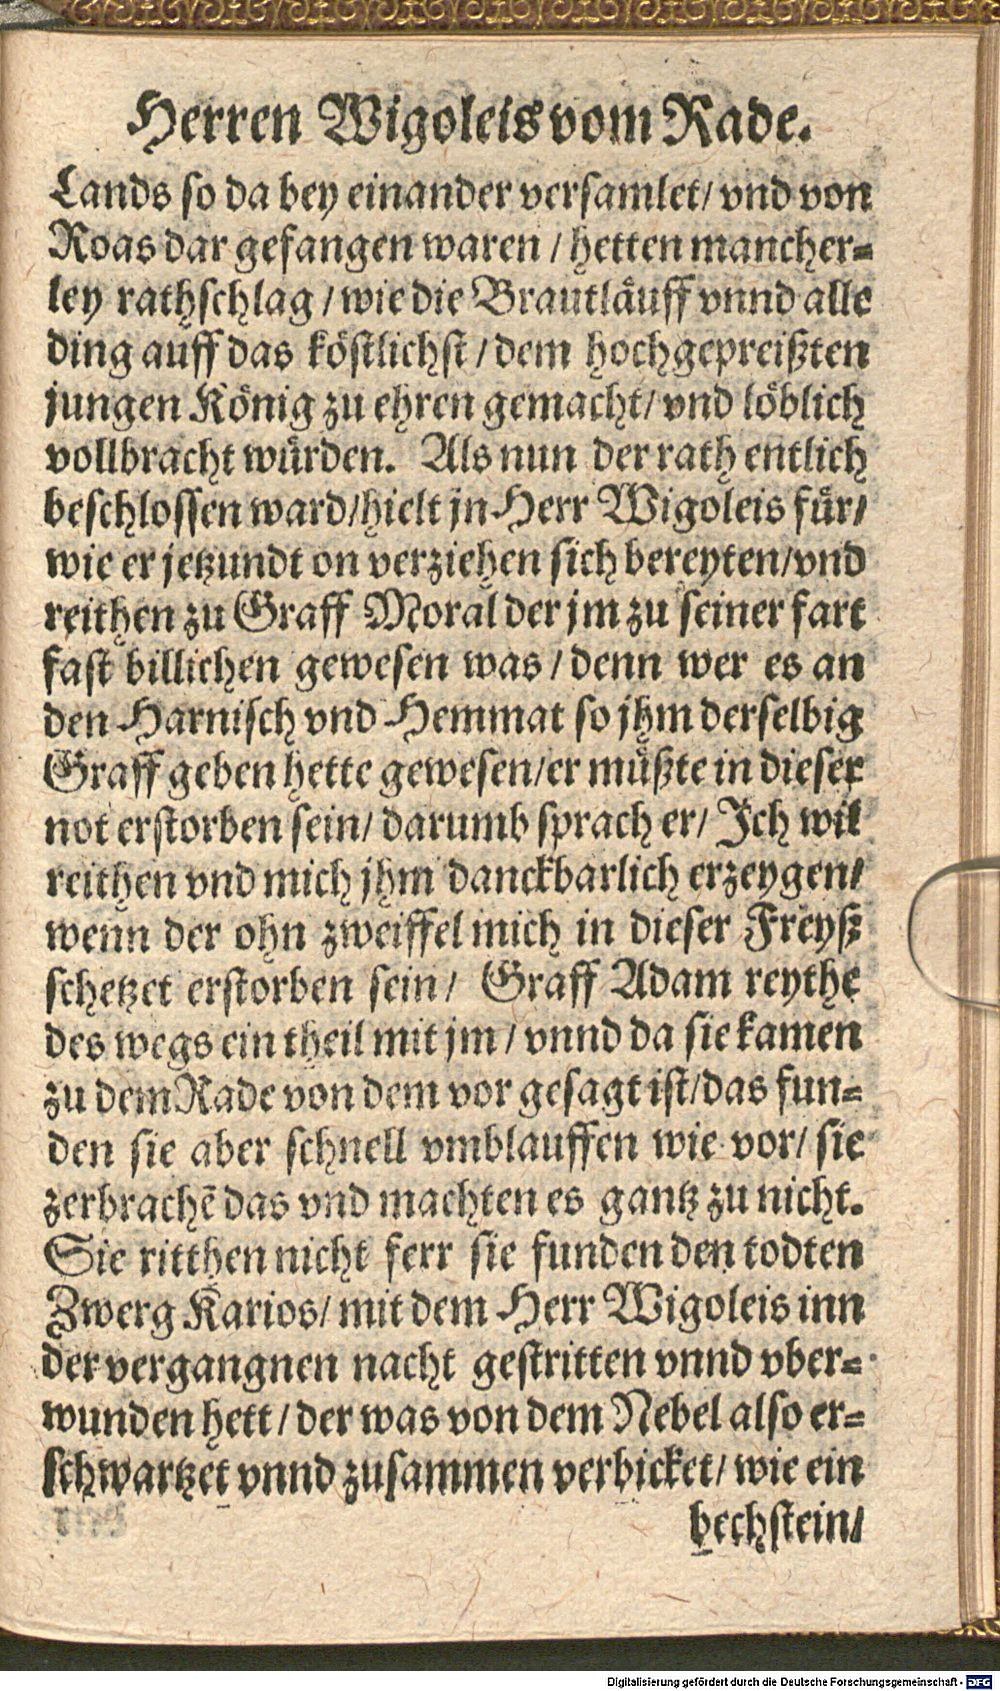 Herren Wigoleis vom Rade.
Lands so da bey einander versamlet/ vnd von
Roas dar gefangen waren / hetten mancher-
ley rathschlag / wie die Brautläuff vnnd alle
ding auff das köstlichst / dem hochgepreißten
jungen König zu ehren gemacht/ vnd löblich
vollbracht würden. Als nun der rath entlich
beschlossen ward/hielt jn Herr Wigoleis für/
wie er jetzundt on verziehen sich bereyten/vnd
reithen zu Graff Moral der jm zu seiner fart
fast billichen gewesen was / denn wer es an
den Harnisch vnd Hemmat so jhm derselbig
Graff geben hette gewesen/er müßte in dieser
not erstorben sein/ darumb sprach er/ Jch wil
reithen vnd mich jhm danckbarlich erzeygen/
wenn der ohn zweiffel mich in dieser Freyß
schetzet erstorben sein/ Graff Adam reythe
des wegs ein theil mit jm / vnnd da sie kamen
zu dem Rade von dem vor gesagt ist/das fun-
den sie aber schnell vmblauffen wie vor/ sie
zerbrachē das vnd machten es gantz zu nicht.
Sie ritthen nicht ferr sie funden den todten
Zwerg Karios/ mit dem Herr Wigoleis inn
der vergangnen nacht gestritten vnnd vber-
wunden hett / der was von dem Nebel also er-
schwartzet vnnd zusammen verbicket/ wie ein
bechstein/
Digitalisierung gefördert durch die Deutsche Forschungsgemeinschaft - DFG